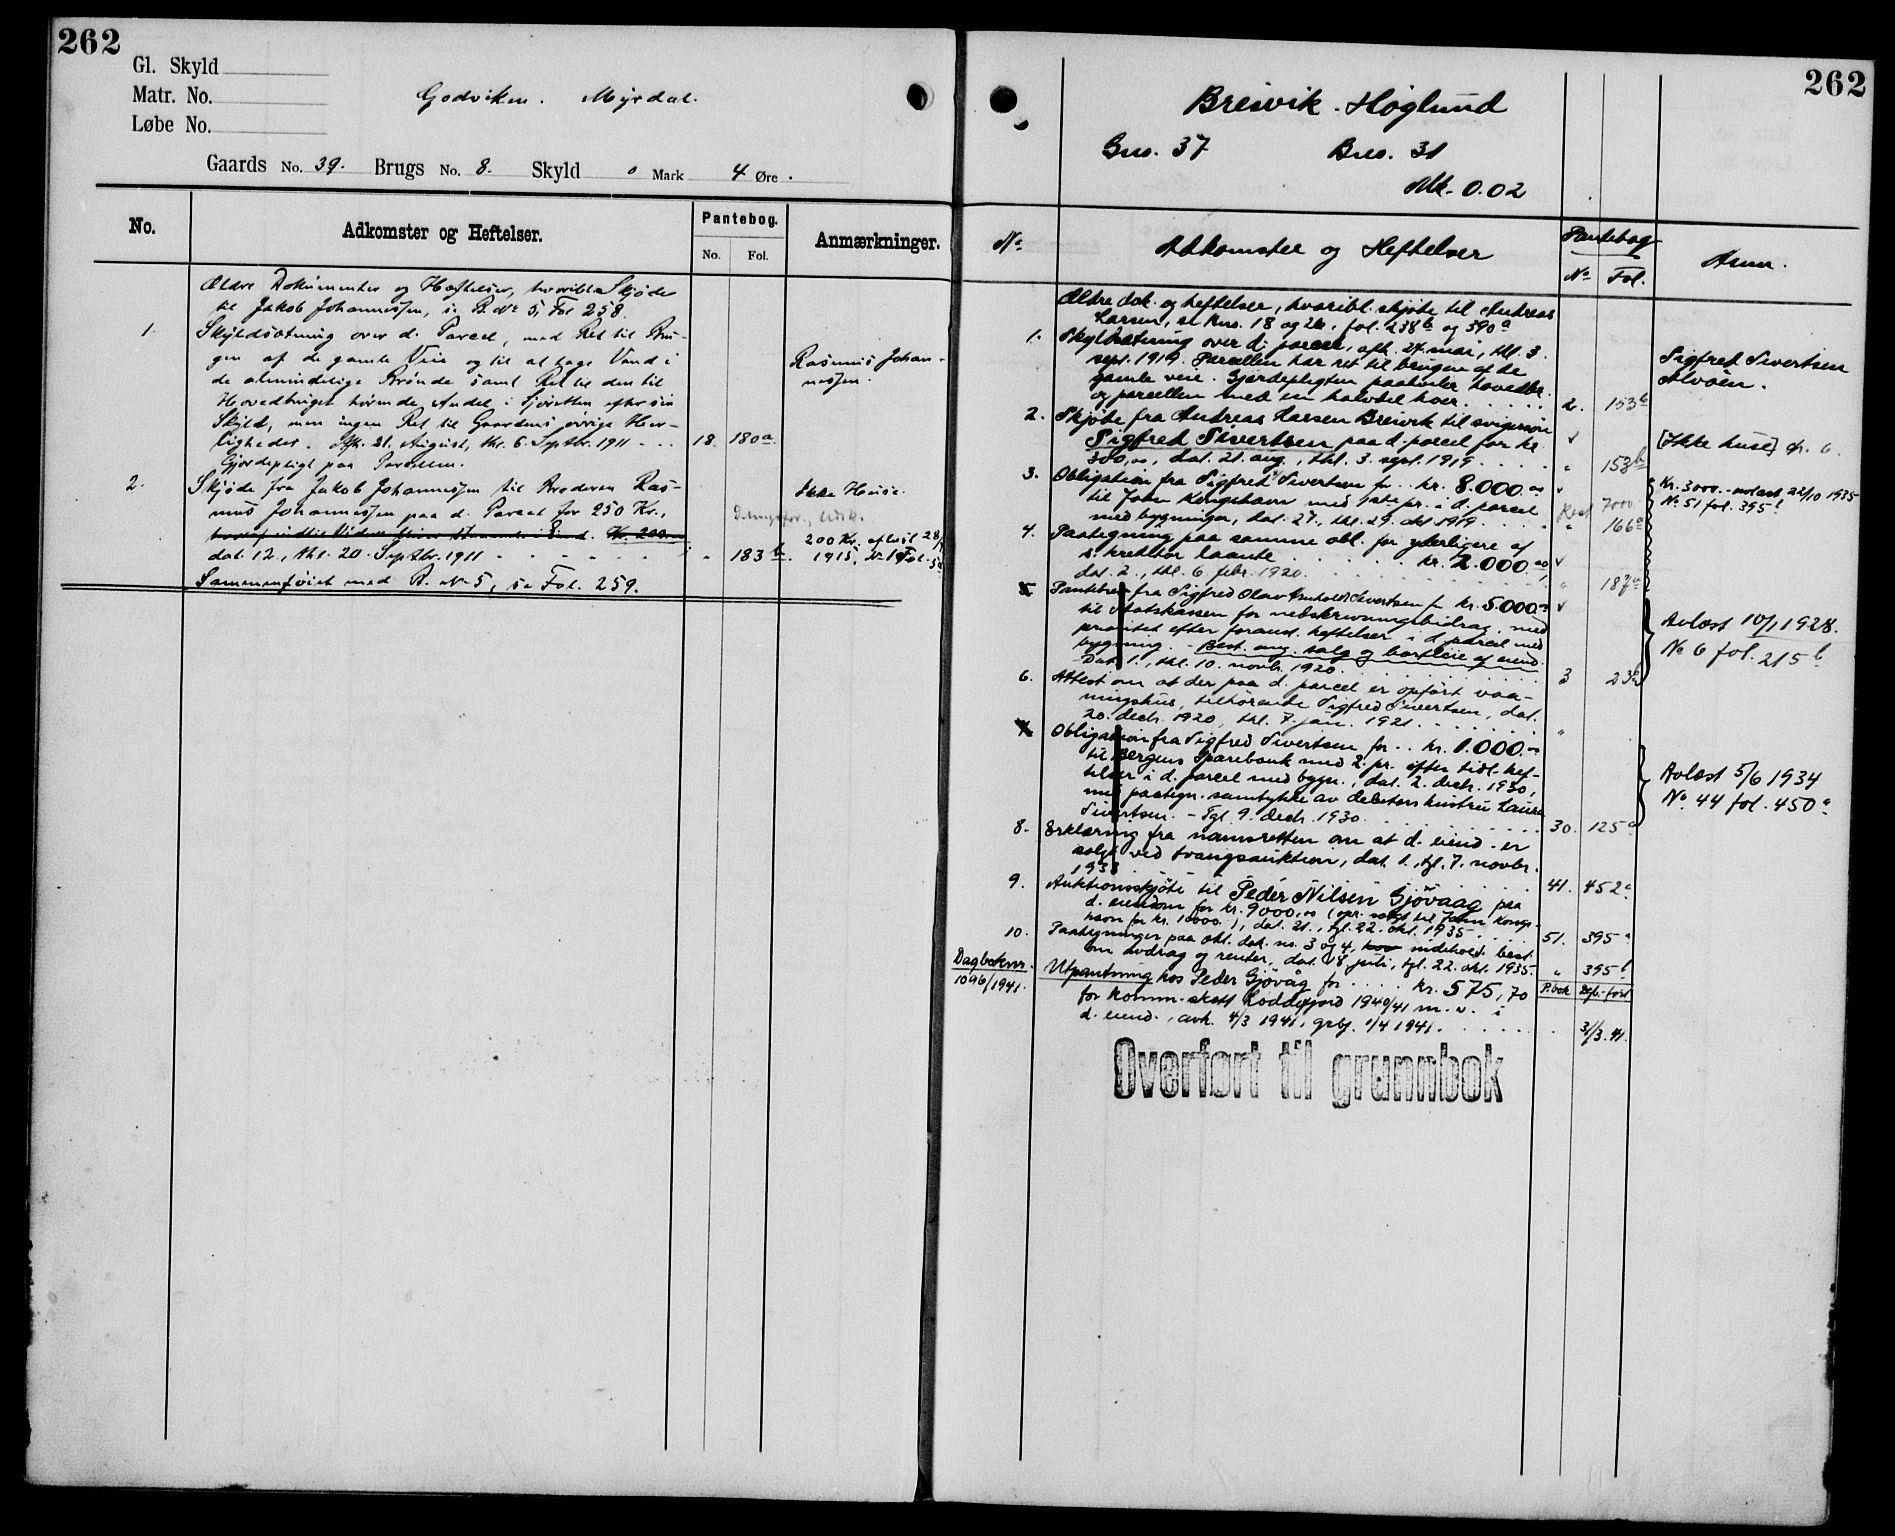 262
Gl. Skyld
Matr. No.
Løbe No.
Godviken. Myrdal.
Gaards No. 39. Brugs No. 8. Skyld 0 Mark 4 Øre.
No.
Adkomster og Heftelser.
Pantebog.
No. Fol.
Anmærkninger.
Ældre Dokumenter og Heftelser, hvoriblt Skjøde
til Jakob Johannessen, se R. No 5, Fol 258.
1. Skyldsætning over d. Parcel, med Ret til Bru-
gen af de gamle Veie og til at tage Vand i
de almindelige Brønde samt Ret til den til
Hovedbruget hørende Andel i Sjøretten efter sin
Skyld, men ingen Ret til Gaardens øvrige Herr-
ligheder. Afh. 21. August, thl. 6. Septbr. 1911 - - - 18. 180a
Gjerdepligt paa Parcellen.
Rasmus Johan-
nessen.
2. Skjøde fra Jakob Johannessen til Broderen Ras-
mus Johannessen paa d. Parcel for 250 Kr.,
Kr. 200
dat. 12., thl. 20. Septbr. 1911 - - - - - " 183b.
Sammenføiet med B. No 5, se Fol. 259.
Ikke Huse.
200 Kr. aflæst 28/
1915, No 19 Fol. 5a
262
Breivik - Høglund
Gno. 37 Bno. 31
Mk. 0.02
No
Adkomster og Heftelser
Pantebog
No Fol.
Anm.
Ældre dok. og heftelser, hvoribl. skjøte til Andreas
Larsen, se Rno. 18 og 26, fol. 238b og 390a
1. Skyldsætning over d. parcel, afh. 24. mai, thl. 3.
sept. 1919. Parcellen har ret til brugen af de
gamle veie. Gjerdepligten paahviler hovedbr.
og parcellen med en halvdel hver. . . . . 2. 153b
Sigfred Sivertsen
Alvøen.
2. Skjøte fra Andreas Larsen Breivik til svigersøn
Sigfred Sivertsen paa d. parcel for kr.
380,00, dat. 21. aug., thl. 3. sept. 1919. . . . . " 153b
[Ikke huse]
3. Obligation fra Sigfred Sivertsen for .. kr. 8.000.00
til John Kongshavn med 1ste pr. i d. parcel
med bygninger, dat. 27., thl. 29. okt 1919. . . . " 166a
Rest 7000.
Kr. 3000.- avlæst 22/10 1935
No. 51 fol. 395b
4. Paategning paa samme obl. for yderligere af
s. kreditor laante . . . . kr. 2.000.00
dat. 2., thl. 6 febr. 1920. . . . . " 187a
5 Pantebrev fra Sigfred Olav Arnholdt Sivertsen for kr. 5.000.00
til Statskassen for nedskrivningsbidrag med
prioritet efter forannt. heftelser i d. parcel med
bygning. - Best. ang. salg og bortleie af eiend.
Dat. 1., thl. 10. novbr. 1920. . . . . 3 23b
Avlæst 10/1 1928.
No 6 fol. 215b
6. Attest om at der paa d. parcel er opført vaa-
ningshus, tilhørende Sigfred Sivertsen, dat.
20. decb. 1920, thl. 7. jan. 1921. . . . . "
Obligation fra Sigfred Sivertsen for .. kr. 1.000.00
til Bergens Sparebank med 2. pr. efter tidl. hef-
telser i d. parcel med bygn., dat. 2. decb. 1930,
med paategn. samtykke av debitors hustru Laura
Sivertsen. - Tgl. 9. decb. 1930. . . . . 30. 125a
Avlæst 5/6 1934
No. 44 fol. 450a
8. Erklæring fra namsretten om at d. eiend. er
solgt ved tvangsauktion, dat. 1., tgl. 7. novbr.
1933 . . . . 41. 452a
9. Auktionsskjøte til Peder Nilsen Gjøvaag paa
d. eiendom for kr. 9000,00 (opr. solgt til John Kongs-
havn for kr. 10000.-), dat. 21., tgl. 22. okt. 1935 . . . 51. 395a
10. Paategninger paa obl. dok. no. 3 og 4, indehold. best.
om avdrag og renter, dat. 18 juli, tgl. 22. okt. 1935. " 395b
Dagboknr.
1096/1941.
Utpantning hos Peder Gjøvåg for . . . . kr. 575,70
for komm. skatt Laddefjord 1940/41 m. v. i
d. eiend., avh. 4/3 1941, grbf. 1/4 1941. . . . .
P.bok Dgb. ført
31/3. 41.
Overført til grunnbok